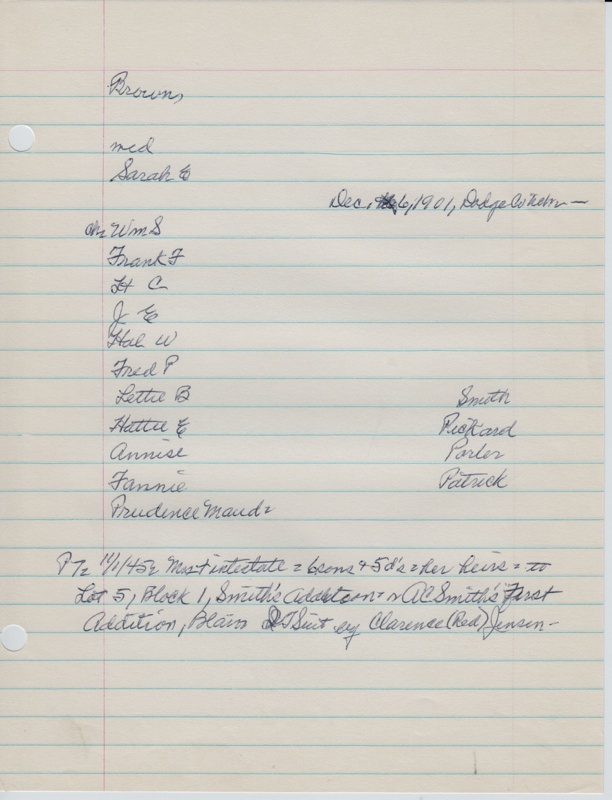 Brown,
md
Sarah E
Dec. 6, 1901, Dodge Co Nebr —
ch= Wm S
Frank F
H C
J E
Hal W
Fred P
Lettie B Smith
Hattie E Pickard
Annise Porter
Fannie Patrick
Prudence Maud=
11/1/45 intestate = 6 sons & 5 d's = her heirs = to
Lot 5, Block 1, Smith's Addition = AC Smith's First
Addition, Blair Suit by Clarence (Red) Jensen -